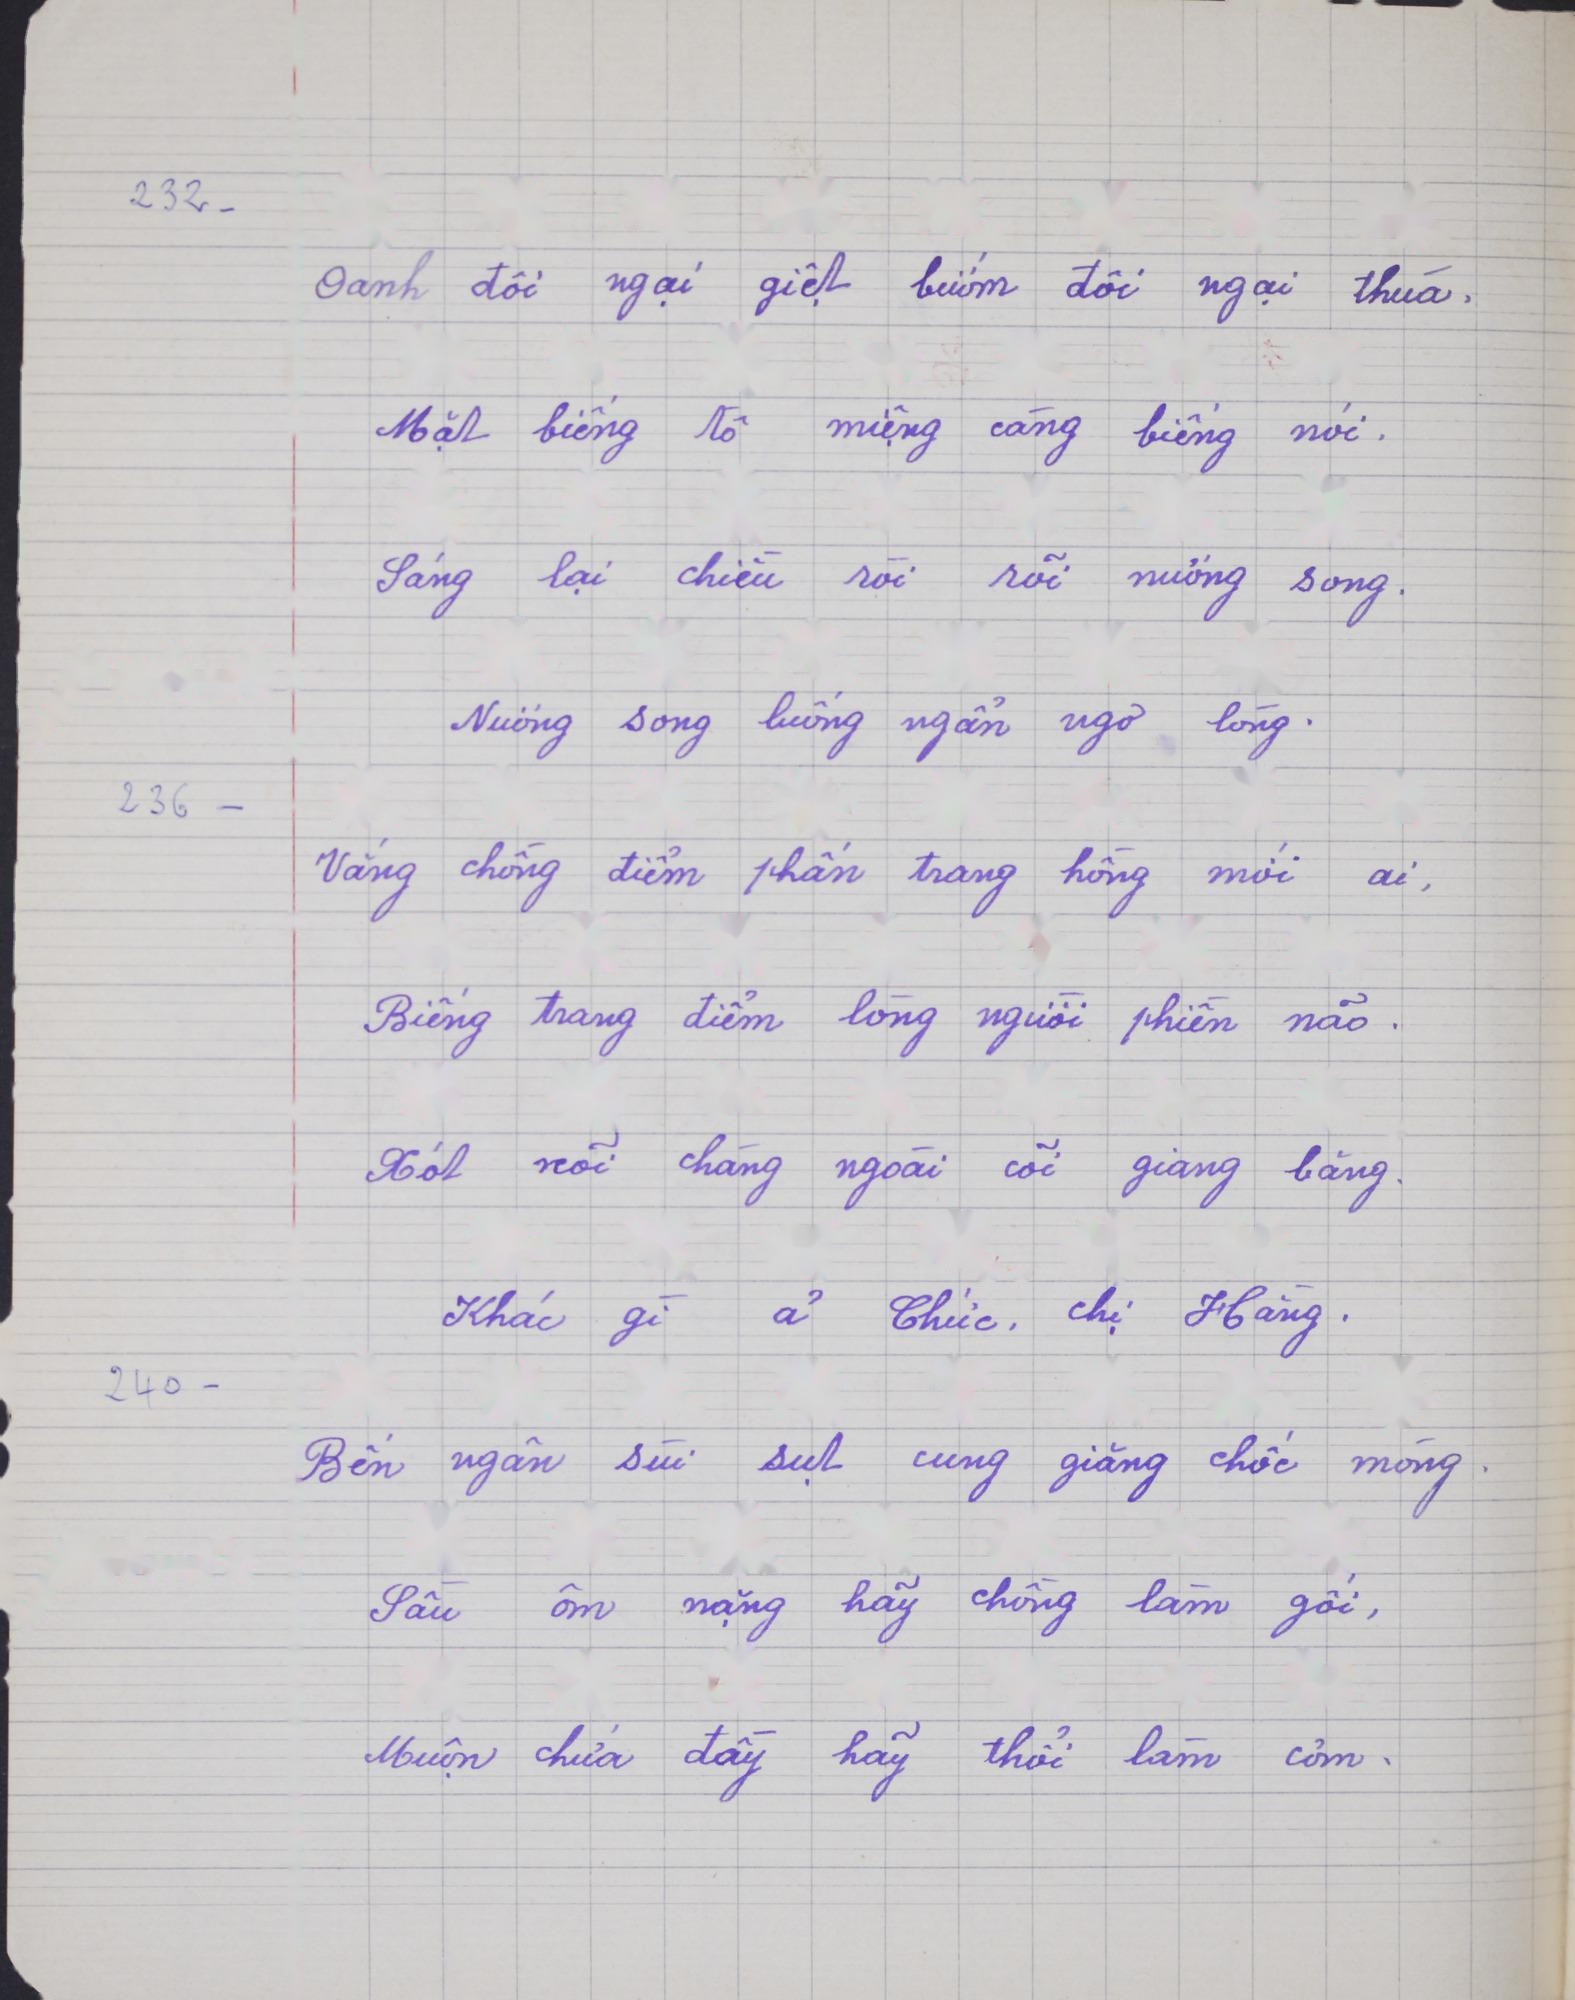 232-
Oanh đôi ngại giệt bướm đôi ngại thùa.
Mặt biếng tô miệng càng biếng nói.
Sáng lại chiều ròi rõi nương song.
Nương song luống ngẩn ngơ lòng.
236 -
Vắng chồng điểm phấn trang hồng mới ai,
Biếng trang điểm lòng người phiền não.
Xót nỗi chàng ngoài cõi giang lăng.
Khác gì ả Chức, chị Hằng.
240 -
Bến ngân sùi sụt cung giăng chốc mòng.
Sầu ôm nặng hãy chồng làm gối,
Muộn chứa đầy hãy thổi làm cơm.